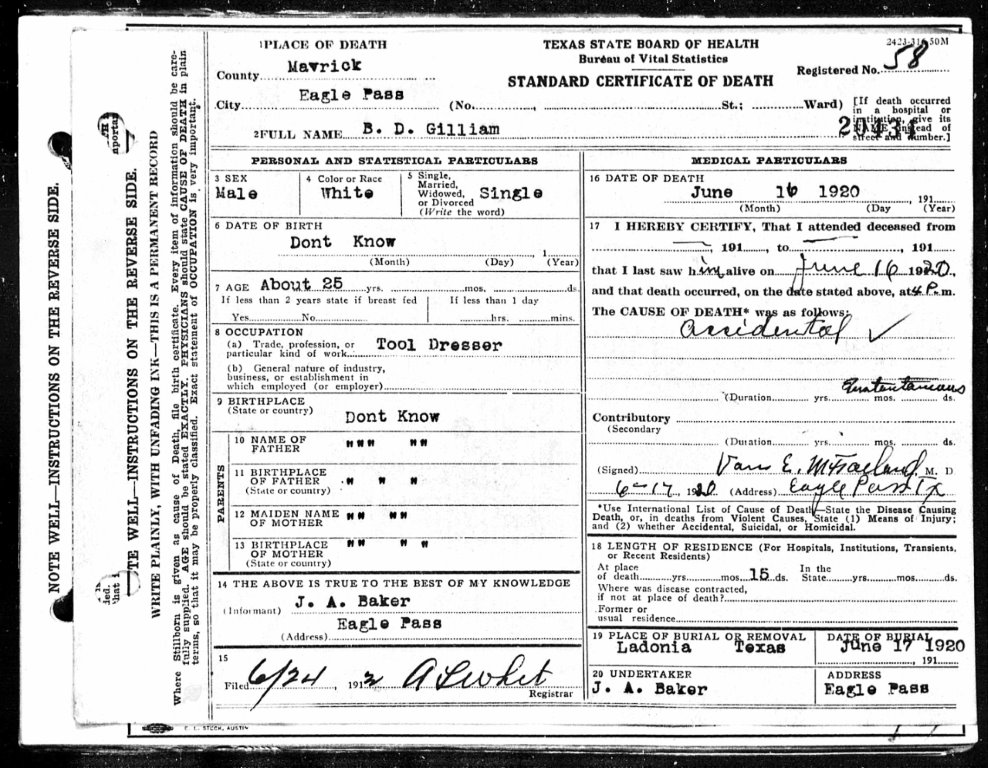 2423-316-50M
1 PLACE OF DEATH
TEXAS STATE BOARD OF HEALTH
Bureau of Vital Statistics
STANDARD CERTIFICATE OF DEATH
Registered No. 58
County Mavrick
City Eagle Pass (No. , St.; Ward)
[If death occurred in a hospital or institution, give its NAME instead of street and number.]
2 FULL NAME B. D. Gilliam
PERSONAL AND STATISTICAL PARTICULARS
3 SEX Male
4 Color or Race White
5 Single, Married, Widowed, or Divorced (Write the word) Single
6 DATE OF BIRTH
Dont Know
(Month) (Day) , 1 (Year)
7 AGE About 25 yrs. mos. ds.
If less than 2 years state if breast fed
Yes No
If less than 1 day
hrs. mins.
8 OCCUPATION
(a) Trade, profession, or
particular kind of work Tool Dresser
(b) General nature of industry,
business, or establishment in
which employed (or employer)
9 BIRTHPLACE
(State or country)
Dont Know
PARENTS
10 NAME OF FATHER " " " " "
11 BIRTHPLACE OF FATHER (State or country) " " "
12 MAIDEN NAME OF MOTHER " " " "
13 BIRTHPLACE OF MOTHER (State or country) " " " "
14 THE ABOVE IS TRUE TO THE BEST OF MY KNOWLEDGE
(Informant) J. A. Baker
Eagle Pass
(Address)
15
Filed 6/24, 191
Registrar
MEDICAL PARTICULARS
16 DATE OF DEATH
June 16 1920
(Month) (Day , 191 (Year)
17 I HEREBY CERTIFY, That I attended deceased from
, 191 , to , 191
that I last saw him alive on June 16 1920,
and that death occurred, on the date stated above, at 4 P. m.
The CAUSE OF DEATH* was as follows:
accidental ✓
(Duration yrs. mos. ds.
Contributory
(Secondary
(Duration yrs. mos. ds.
(Signed) Van E. McFarland, M. D
6-17, 1920 (Address) Eagle Pass Tx
*Use International List of Cause of Death—State the Disease Causing
Death, or, in deaths from Violent Causes, State (1) Means of Injury;
and (2) whether Accidental, Suicidal, or Homicidal.
18 LENGTH OF RESIDENCE (For Hospitals, Institutions, Transients,
or Recent Residents)
At place of death yrs. mos. 15 ds. In the State yrs. mos. ds.
Where was disease contracted,
if not at place of death?
Former or
usual residence
19 PLACE OF BURIAL OR REMOVAL
Ladonia Texas
DATE OF BURIAL
June 17 1920
, 191
20 UNDERTAKER
J. A. Baker
ADDRESS
Eagle Pass
NOTE WELL—INSTRUCTIONS ON THE REVERSE SIDE.
TE WELL—INSTRUCTIONS ON THE REVERSE SIDE.
WRITE PLAINLY, WITH UNFADING INK—THIS IS A PERMANENT RECORD
Where Stillborn is given as cause of Death, file birth certificate. Every item of information should be care-
fully supplied. AGE should be stated EXACTLY. PHYSICIANS should state CAUSE OF DEATH in plain
terms, so that it may be properly classified. Exact statement of OCCUPATION is very important.
STECK, AUSTIN